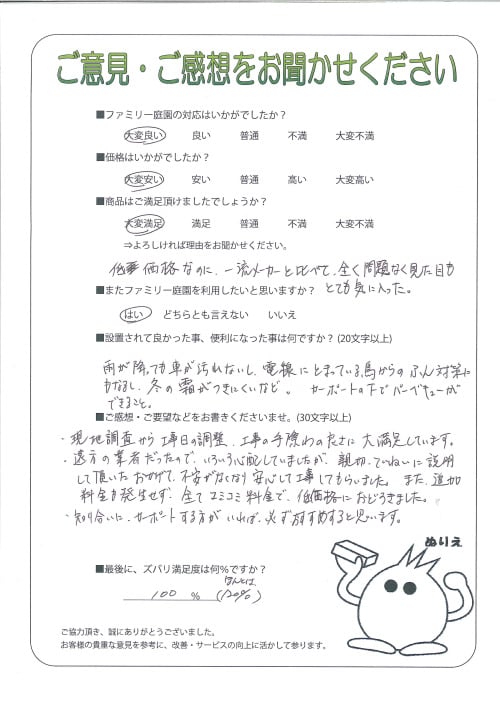 ご意見・ご感想をお聞かせください
■ファミリー庭園の対応はいかがでしたか？
大変良い 良い 普通 不満 大変不満
■価格はいかがでしたか？
大変安い 安い 普通 高い 大変高い
■商品はご満足頂けましたでしょうか？
大変満足 満足 普通 不満 大変不満
⇒よろしければ理由をお聞かせください。
低価格なのに、一流メーカーと比べて、全く問題なく見た目も
とても気に入った。
■またファミリー庭園を利用したいと思いますか？
はい どちらとも言えない いいえ
■設置されて良かった事、便利になった事は何ですか？(20文字以上)
雨が降っても車が汚れないし、電線にとまっている鳥からのふん対策に
もなるし、冬の霜がつきにくいなど。カーポートの下でバーベキューが
できること。
■ご感想・ご要望などをお書きくださいませ。(30文字以上)
・現地調査から工事日の調整、工事の手際わのたさに大満足しています。
・遠方の業者だったので、いろいろ心配していましたが、親切、ていねいに説明
して頂いたおかげで、不安がなくなり安心して工事してもらいました。また、追加
料金も発生せず、全てコミコミ料金で、低価格におどろきました。
・知り合いに、カーポートする方がいれば、必ずおすすめすると思います。
■最後に、ズバリ満足度は何％ですか？
100 % ほんとは (120%)
ぬりえ
ご協力頂き、誠にありがとうございました。
お客様の貴重な意見を参考に、改善・サービスの向上に活かして参ります。